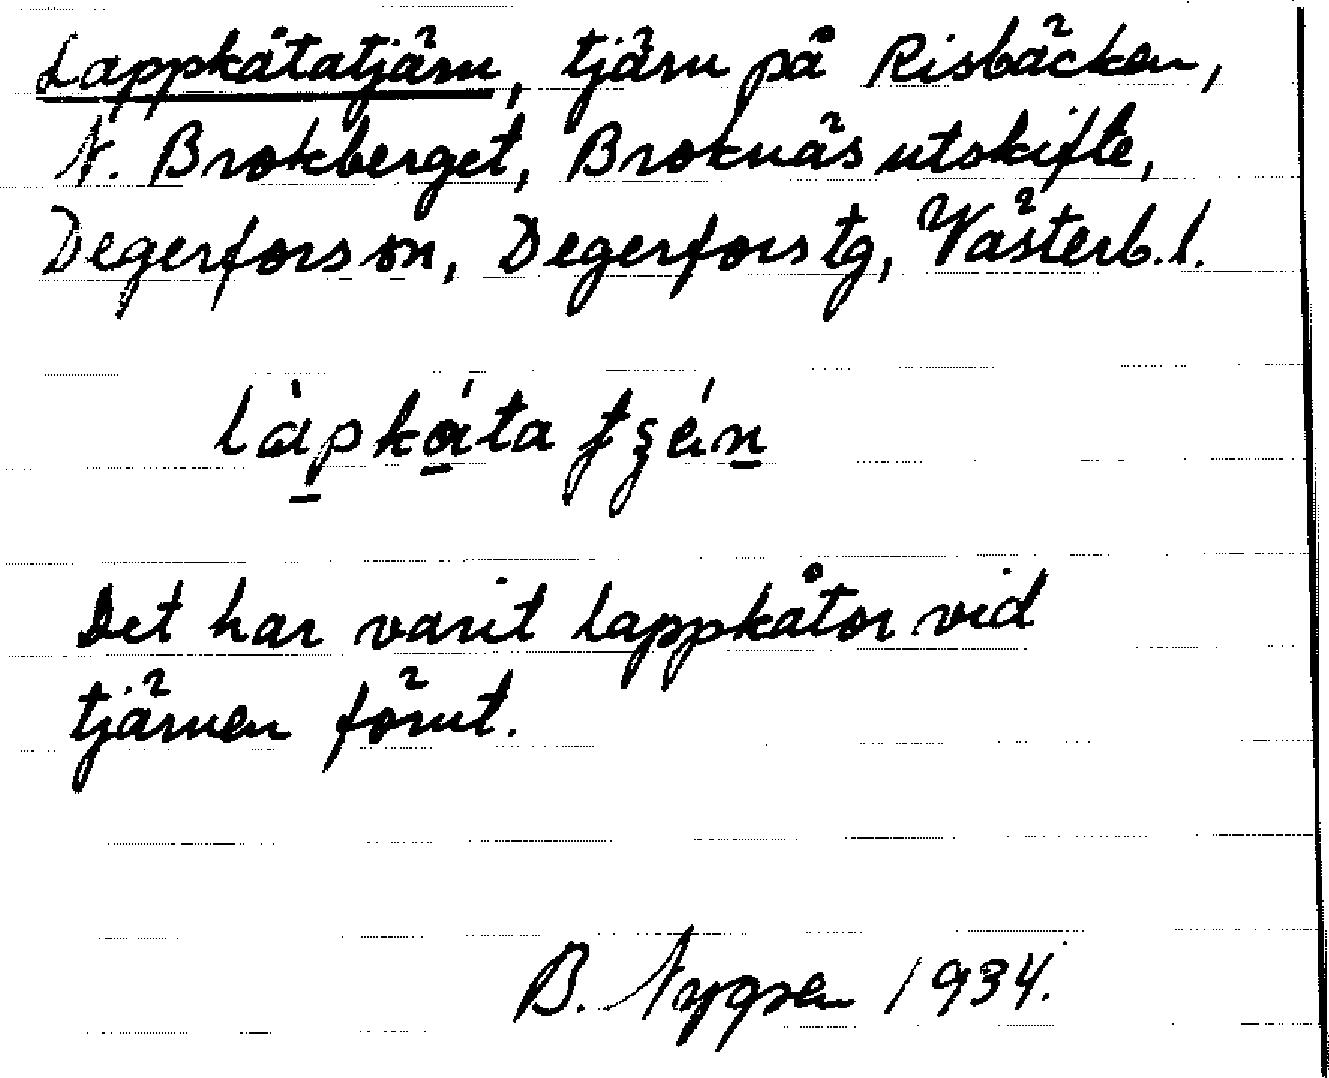 Lappkåtatjärn, tjärn på Risbäcken,
N. Brokberget, Broknäs utskifte,
Degerfors sn, Degerfors tg, Västerb. l.
Det har varit lappkåtor vid
tjärnen förut.
B. Nygren 1934.